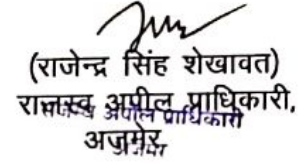 (राजेन्द्र सिंह शेखावत)
राजस्व अपील प्राधिकारी,
अपील प्राधिकारी
अजमेर